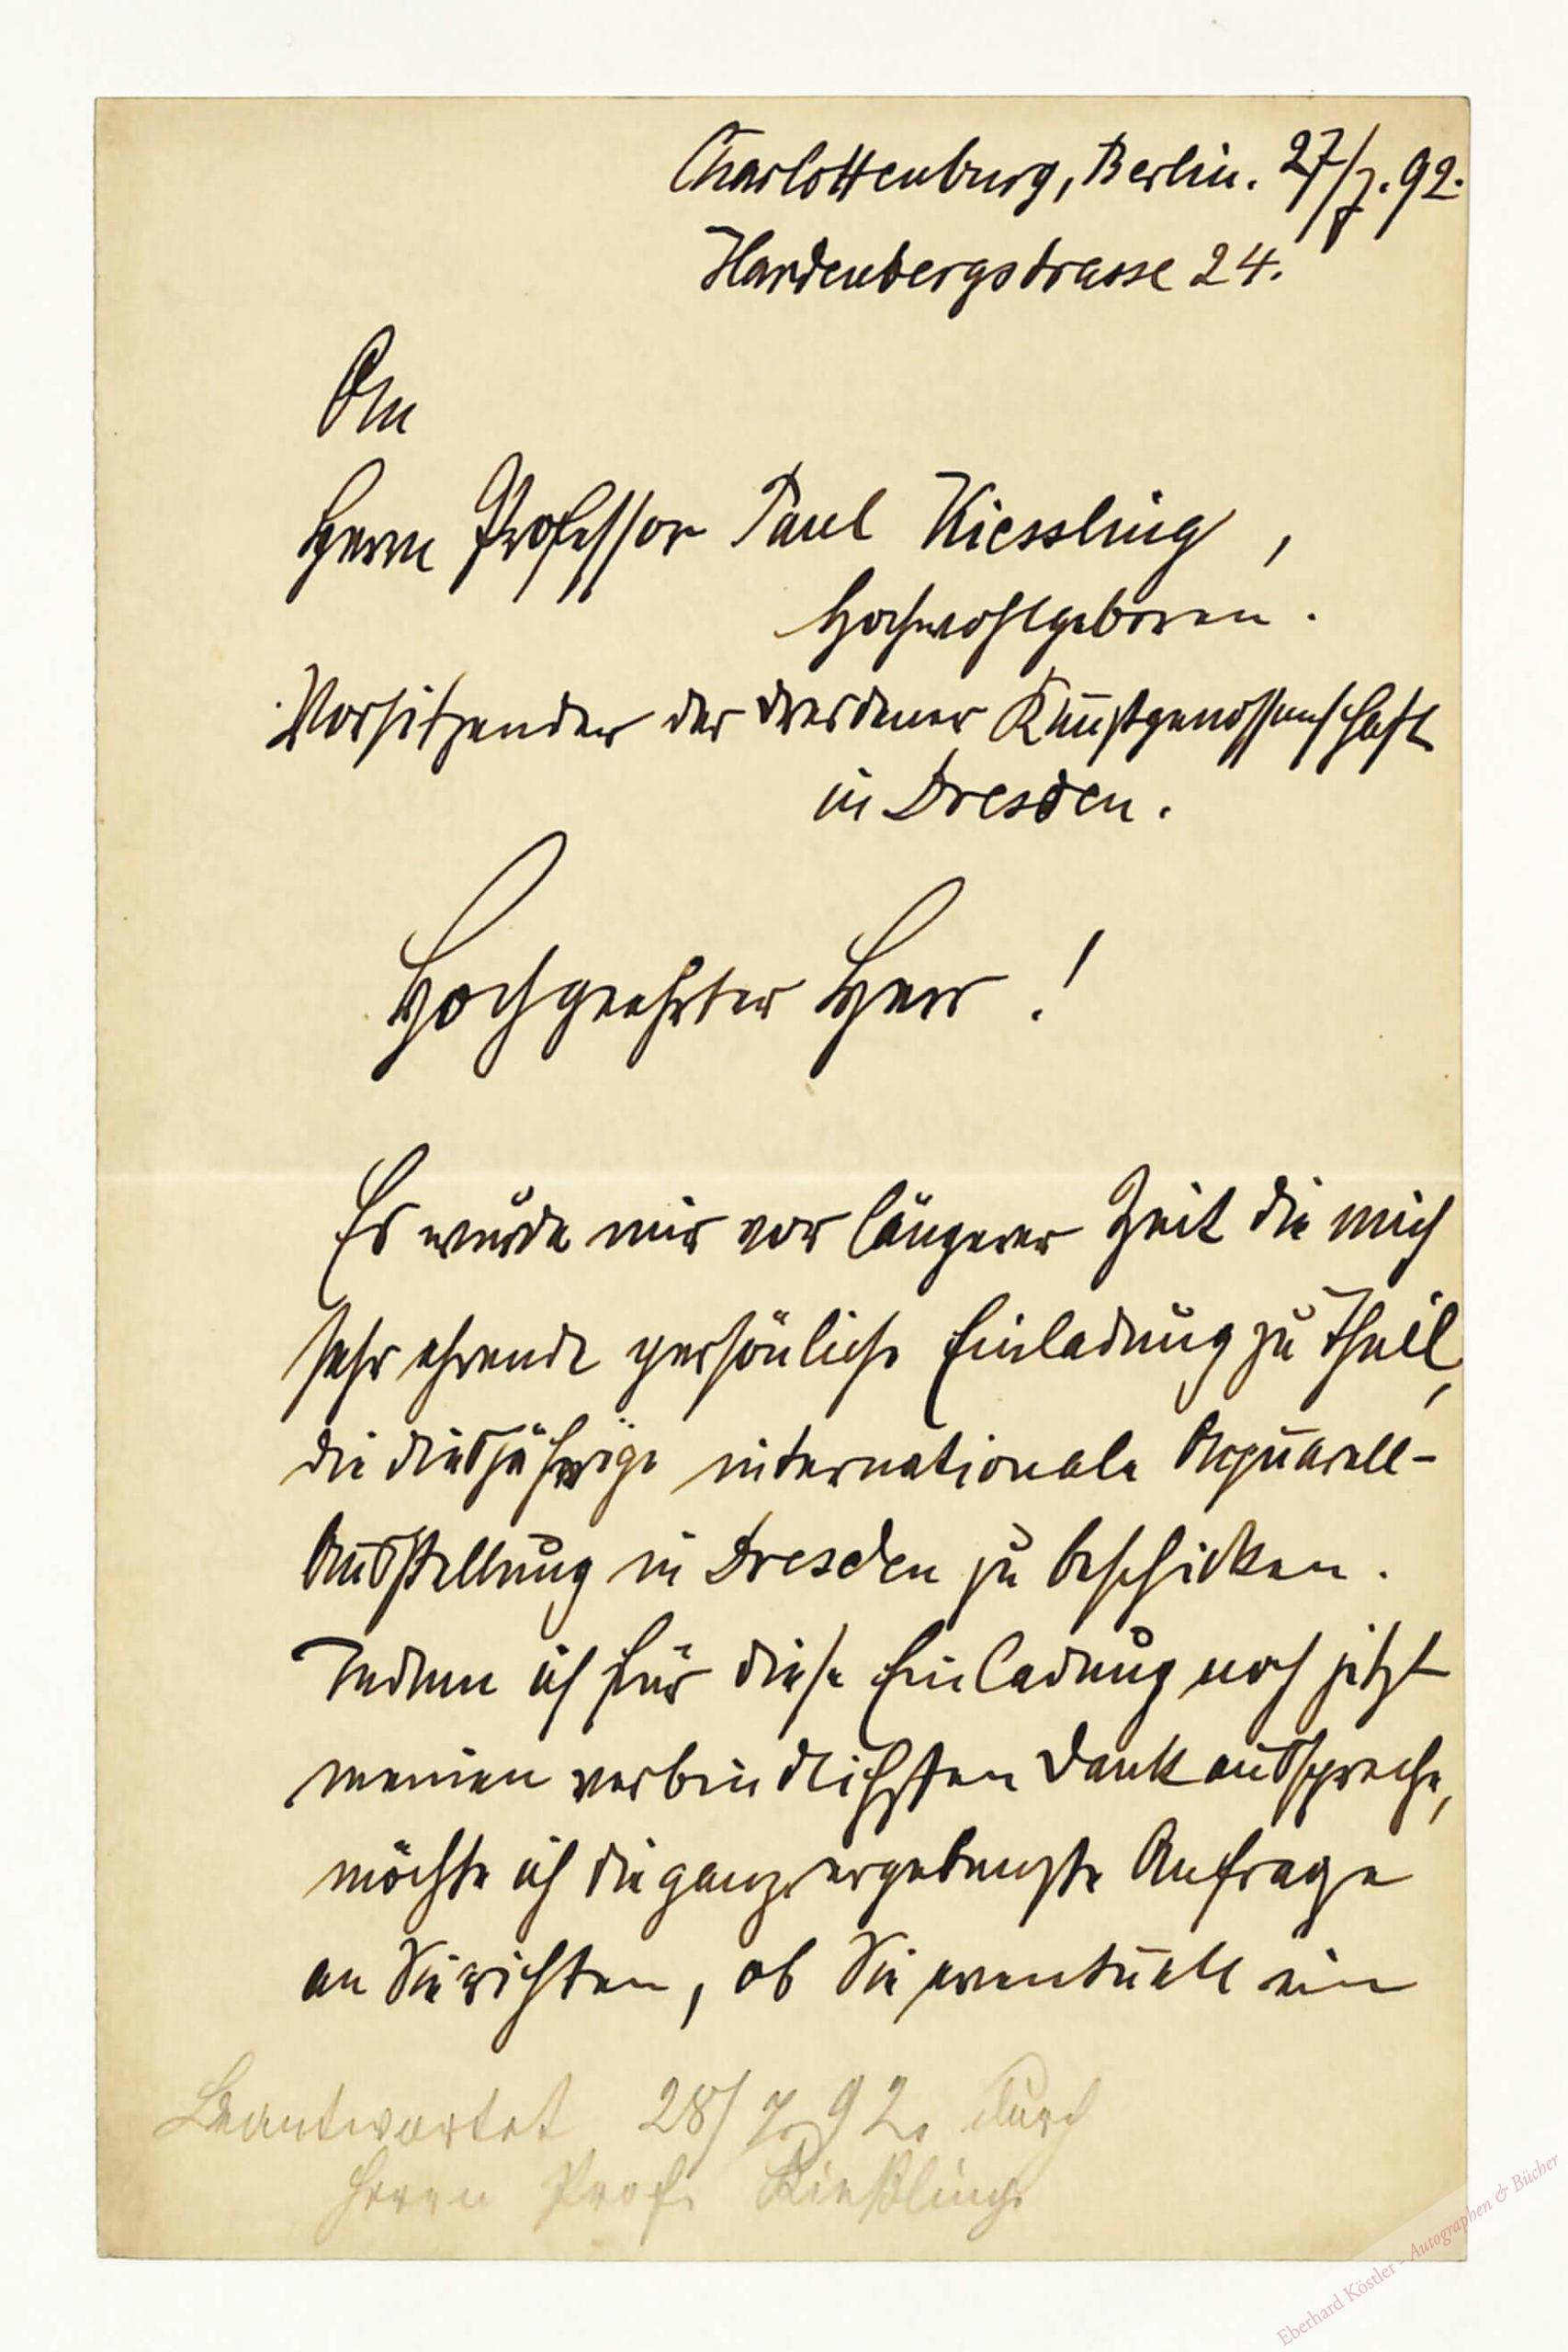 Charlottenburg, Berlin. 27/7. 92.
Hardenbergstrasse 24.
An
Herrn Professor Paul Kiessling,
Hochwohlgeboren.
Vorsitzender der dresdener Kunstgenossenschaft
in Dresden.
Hochgeehrter Herr!
Es wurde mir vor längerer Zeit die mich
sehr ehrende persönliche Einladung zu Theil,
die diesjährige internationale Aquarell-
Ausstellung in Dresden zu beschicken.
Indem ich für diese Einladung noch jetzt
meinen verbindlichsten Dank ausspreche,
möchte ich die ganz ergebenste Anfrage
an Sie richten, ob Sie eventuell ein
Beantwortet 28/7. 92. durch
Herrn Prof. Kießling.
Eberhard Köstler - Autographen & Bücher